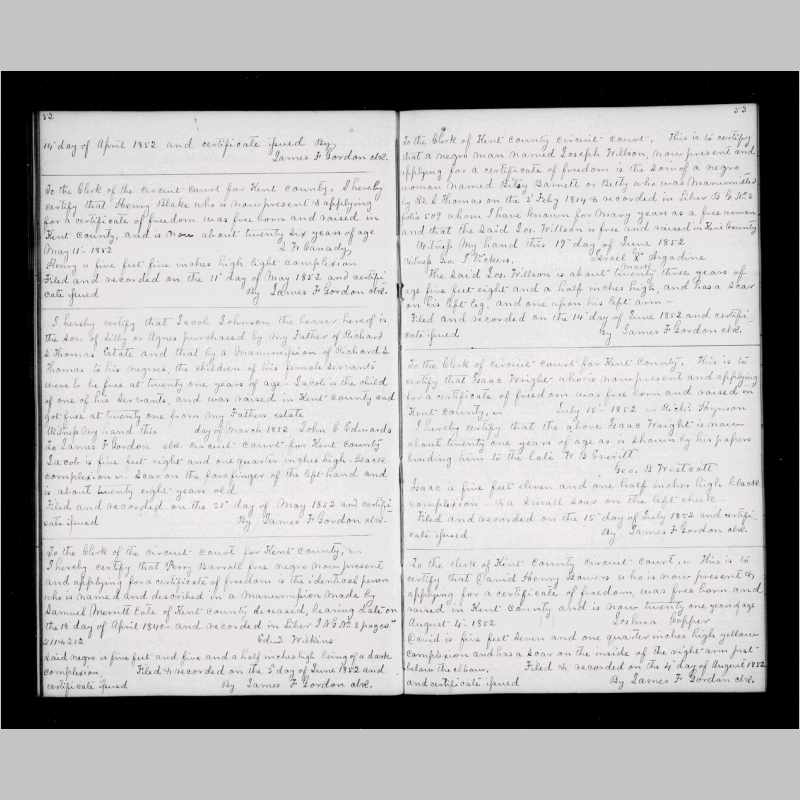 52
14" day of April 1852 and certificate issued By
James F Gordon clk.
To the Clerk of the circuit court for Kent County. I hereby
certify that Henry Blake who is now present & applying
for a certificate of freedom was free born and raised in
Kent County, and is now about twenty six years of age
May 11" 1852 S W Canady
Henry is five feet five inches high light complexion
Filed and recorded on the 11" day of May 1852 and certifi-
cate issued By James F Gordon clk.
I hereby certify that Jacob Johnson the bearer hereof is
the son of or Agnes purchased by my Father of Richard
S Thomas Estate and that by a Manumission of Richard S
Thomas to his negroes, the children of his female servants
were to be free at twenty one years of age - Jacob is the child
of one of his servants, and was raised in Kent County and
got free at twenty one from my Fathers estate
Witness my hand this day of March 1852 John C Edwards
To James F Gordon clk circuit court for Kent County
Jacob is five feet eight and one quarter inches high - black
complexion scar on the forefinger of the left hand and
is about twenty eight years old
Filed and recorded on the 25" day of May 1852 and certifi-
cate issued By James F Gordon clk.
To the Clerk of the circuit court for Kent County,
I hereby certify that Perry Barroll free negro now present
and applying for a certificate of freedom is the identical person
who is named and described in a Manumission made by
Samuel Merritt late of Kent County deceased, bearing date on
the 18 day of April 1840 and recorded in Liber J N G No. 2 pages
211 & 212 Edwd Wilkins
Said negro is five feet and five and a half inches high being of a dark
complexion Filed & recorded on the 5 day of June 1852 and
certificate issued By James F Gordon clk.
53
To the Clerk of Kent County circuit court. This is to certify
that a negro man named Joseph Willson, now present and
applying for a certificate of freedom is the son of a negro
woman named Bitsy Barnett or Betty who was manumitted
by R S Thomas on the 2" Feby 1814 & recorded in Liber No 2
folio 509 whom I have known for many years as a free woman
and that the said Jos. Willson is free and raised in Kent County
Witness my hand this 19" day of June 1852
Witness Geo. J Vickers. Israel X Argadine
mark
The said Jos. Willson is about twenty three years of
age five feet eight and a half inches high, and has a scar
on his left leg, and one upon his left arm -
Filed and recorded on the 14" day of June 1852 and certifi-
cate issued By James F Gordon clk.
To the Clerk of circuit court for Kent County. This is to
certify that Isaac Wright who is now present and applying
for a certificate of freedom was free born and raised in
Kent County, July 15" 1852 Hynson
I hereby certify that the above Isaac Wright is now
about twenty one years of age as is shown by his papers
binding him to the late W B Everitt
Geo. B Westcott
Isaac is five feet eleven and one half inches high black
complexion - a small scar on the left cheek -
Filed and recorded on the 15" day of July 1852 and certifi-
cate issued By James F Gordon clk.
To the clerk of Kent County circuit court This is to
certify that David Henry Bowers who is now present &
applying for a certificate of freedom, was free born and
raised in Kent County and is now twenty one years of age
August 4" 1852 Joshua Copper
David is five feet seven and one quarter inches high yellow
complexion and has a scar on the inside of the right arm just
below the elbow. Filed & recorded on the 4" day of August 1852
and certificate issued By James F Gordon clk.